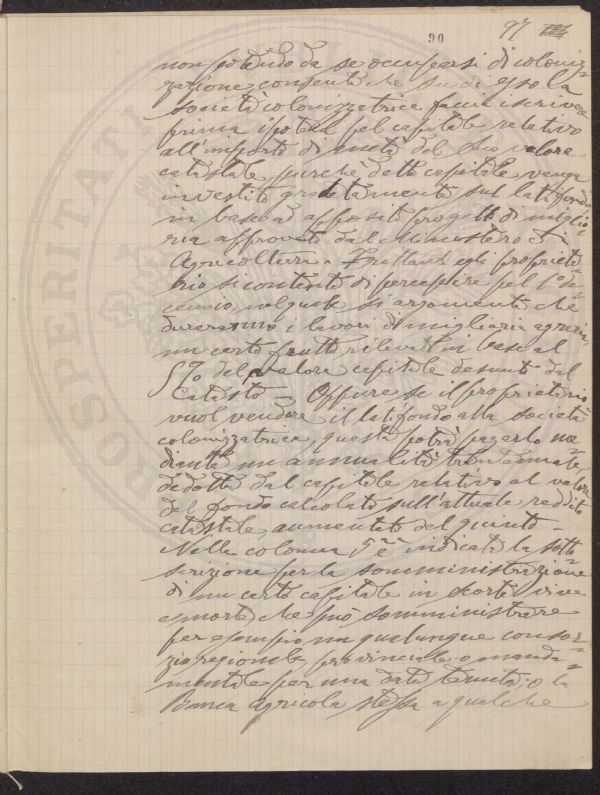 90 97
non potendo da se occuparsi di coloniz=
zazione, consente che su di esso la
società colonizzatrice faccia iscrivere
prima ipoteca pel capitale relativo
all'importo di metà del suo valore
catastale, purchè detto capitale venga
investito gradatamente sul latifondo
in base ad apposito progetto di miglio=
ria approvato dal Ministero di
Agricoltura. Frattanto egli proprieta=
rio si contenti di percepire pel 1° de=
cennio, nel quale si argomenta che
dureranno i lavori di miglioria agraria,
un certo frutto rilevato in base al
5% del valore capitale desunto dal
Catasto — Oppure se il proprietario
vuol vendere il latifondo alla società
colonizzatrice, questa potrà pagarlo me=
diante un annualità
dedotta dal capitale relativo al valore
del fondo calcolato sull'attuale reddito
catastale, aumentato del quinto —
Nella colonna 5ª è indicata la sotto=
scrizione per la somministrazione
di un certo capitale in scorte vive
e morte che può somministrare
per esempio, un qualunque consor=
zio regionale, provinciale o manda=
mentale per una data tenuta; o la
Banca Agricola stessa a qualche